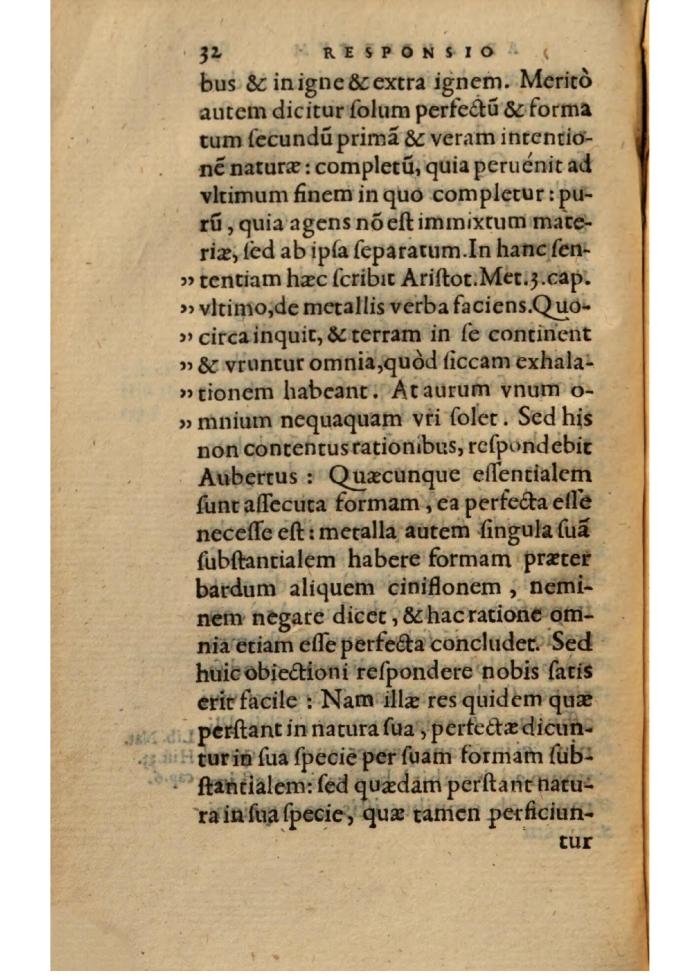 32 RESPONSIO
bus & in igne & extra ignem. Meritò
autem dicitur ſolum perfectũ & forma
tum ſecundũ primã & veram intentio-
nẽ naturæ: completũ, quia peruénit ad
vltimum finem in quo completur: pu-
rũ, quia agens nõ eſt immixtum mate-
riæ, ſed ab ipſa ſeparatum. In hanc ſen-
„ tentiam hæc ſcribit Ariſtot. Met. 3. cap.
„ vltimo, de metallis verba faciens. Quo-
„ circa inquit, & terram in ſe continent
„ & vruntur omnia, quòd ſiccam exhala-
„ tionem habeant. At aurum vnum o-
„ mnium nequaquam vri ſolet. Sed his
non contentus rationibus, reſpondebit
Aubertus: Quæcunque eſſentialem
ſunt aſſecuta formam, ea perfecta eſſe
neceſſe eſt: metalla autem ſingula ſuã
ſubſtantialem habere formam præter
bardum aliquem ciniflonem, nemi-
nem negare dicet, & hac ratione om-
nia etiam eſſe perfecta concludet. Sed
huic obiectioni reſpondere nobis ſatis
erit facile: Nam illæ res quidem quæ
perſtant in natura ſua, perfectæ dicun-
tur in ſua ſpecie per ſuam formam ſub-
ſtantialem: ſed quædam perſtant natu-
ra in ſua ſpecie, quæ tamen perficiun-
tur